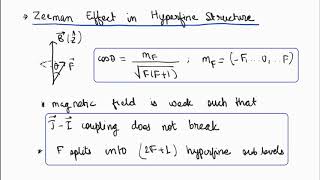 → Zeeman Effect in Hyperfine Structure
B⃗ (ẑ)
θ F⃗
cosθ = m_F / √F(F+1) ; m_F = (-F,...0,...F)
• magnetic field is weak such that
J⃗ - I⃗ coupling does not break
• F splits into (2F+1) hyperfine sub levels